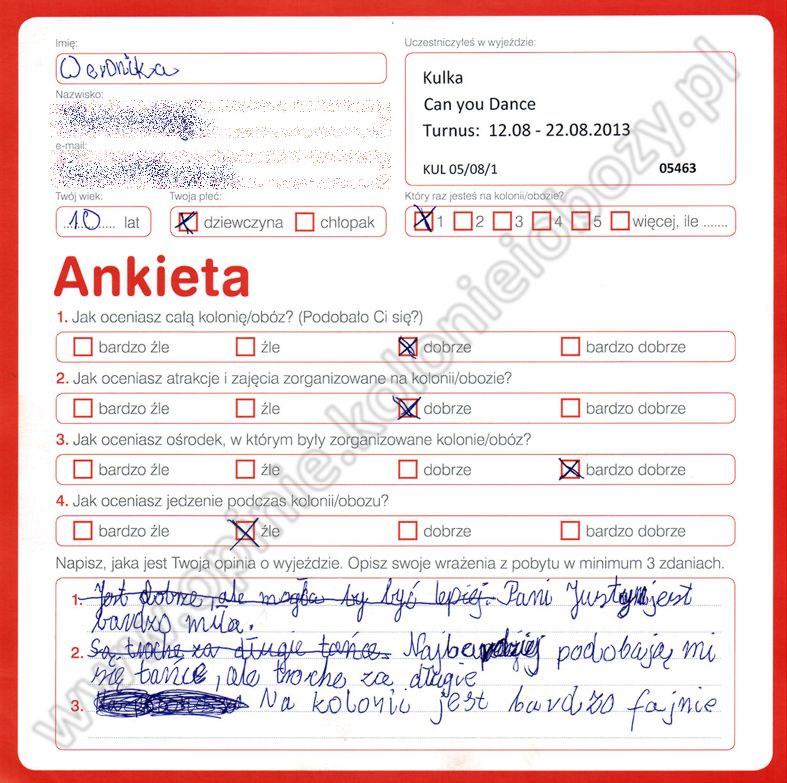 Imię:
Weronika
Uczestniczyłeś w wyjeździe:
Kulka
Can you Dance
Turnus: 12.08 - 22.08.2013
KUL 05/08/1 05463
Nazwisko:
e-mail:
Twój wiek: Twoja płeć: Który raz jesteś na kolonii/obozie?
10 lat dziewczyna chłopak 1 2 3 4 5 więcej, ile .......
Ankieta
1. Jak oceniasz całą kolonię/obóz? (Podobało Ci się?)
bardzo źle źle dobrze bardzo dobrze
2. Jak oceniasz atrakcje i zajęcia zorganizowane na kolonii/obozie?
bardzo źle źle dobrze bardzo dobrze
3. Jak oceniasz ośrodek, w którym były zorganizowane kolonie/obóz?
bardzo źle źle dobrze bardzo dobrze
4. Jak oceniasz jedzenie podczas kolonii/obozu?
bardzo źle źle dobrze bardzo dobrze
Napisz, jaka jest Twoja opinia o wyjeździe. Opisz swoje wrażenia z pobytu w minimum 3 zdaniach.
1. Jest dobrze, ale mogła by być lepiej. Pani Justyna jest
bardzo miła.
2. Są trochę za długie tańce. Najbardziej podobają mi
się tańce, ale trochę za długie
3. Na kolonii jest bardzo fajnie
www.opinie.kolonieiobozy.pl